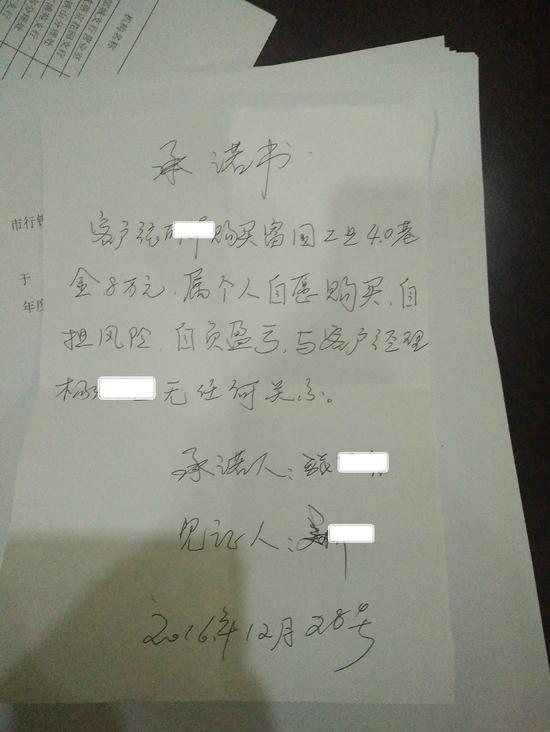 承诺书
客户张 购买富国工业4.0基
金8万元.属个人自愿购买,自
担风险,自负盈亏,与客户经理
杨 无任何关系。
承诺人:张
见证人:
2016年12月28号
机构名称
市行
于
年